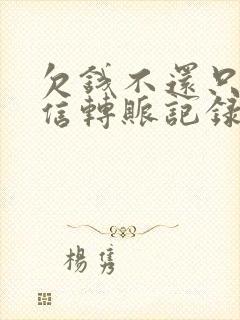 欠錢不還只
信轉賬記錄
楊隽